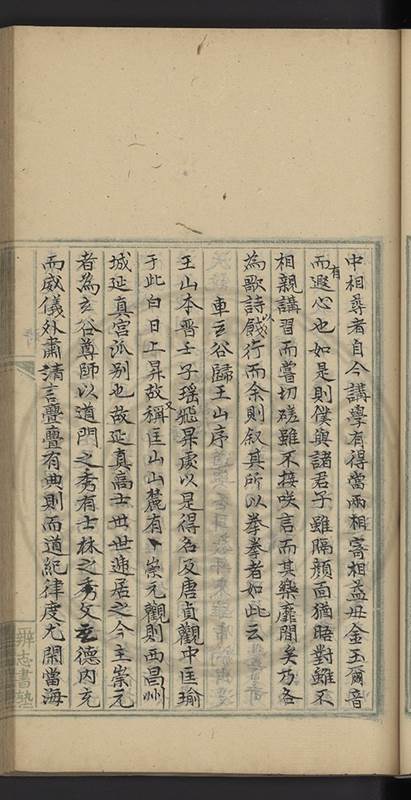 中相尋者自今講學有得當兩相寄相益毋金玉爾音
而有遐心也如是則僕與諸君子雖隔顔面猶晤對雖不
相親講習而嘗切磋雖不接咲言而其樂靡間矣乃各
為歌詩以餞行而余則叙其所以拳拳者如此云
車玄谷歸王山序
王山本晋王子瑶飛昇處以是得名及唐貞觀中匡瑜
于此白日上昇故又稱匡山山麓有崇元觀則西昌州
城延真宫派别也故延真高士世世遞居之今主崇元
者為玄谷尊師以道門之秀有士林之秀文玄德内充
而威儀外肅請言亹亹有典則而道紀律度尤閑當海
辨志書塾